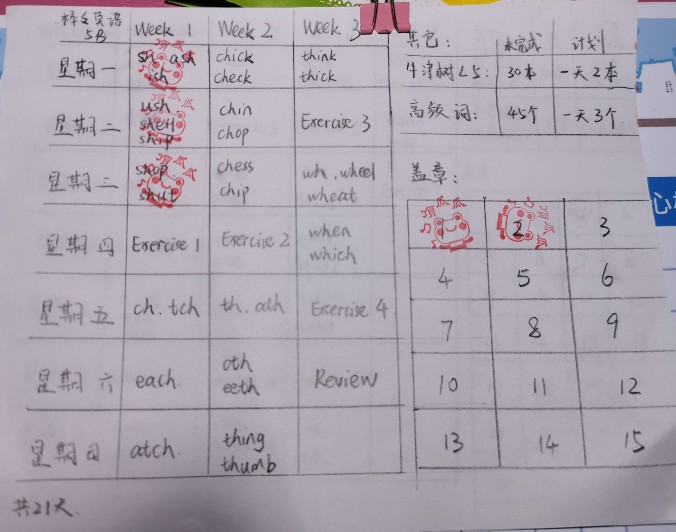 梓乡英语 Week 1 Week 2 Week 3
5B
星期一 sh ash chick think
ish check thick
星期二 ush chin Exercise 3
shell chop
ship
星期三 shop chess wh. wheel
shut chip wheat
星期四 Exercise 1 Exercise 2 when
which
星期五 ch. tch th. ath Exercise 4
星期六 each oth Review
eeth
星期日 atch. thing
thumb
共21天.
其它: 未完成 计划
牛津树L5: 30本 一天2本
高频词: 45个 一天3个
盖章:
顶瓜瓜 2 顶瓜瓜 3
4 5 6
7 8 9
10 11 12
13 14 15